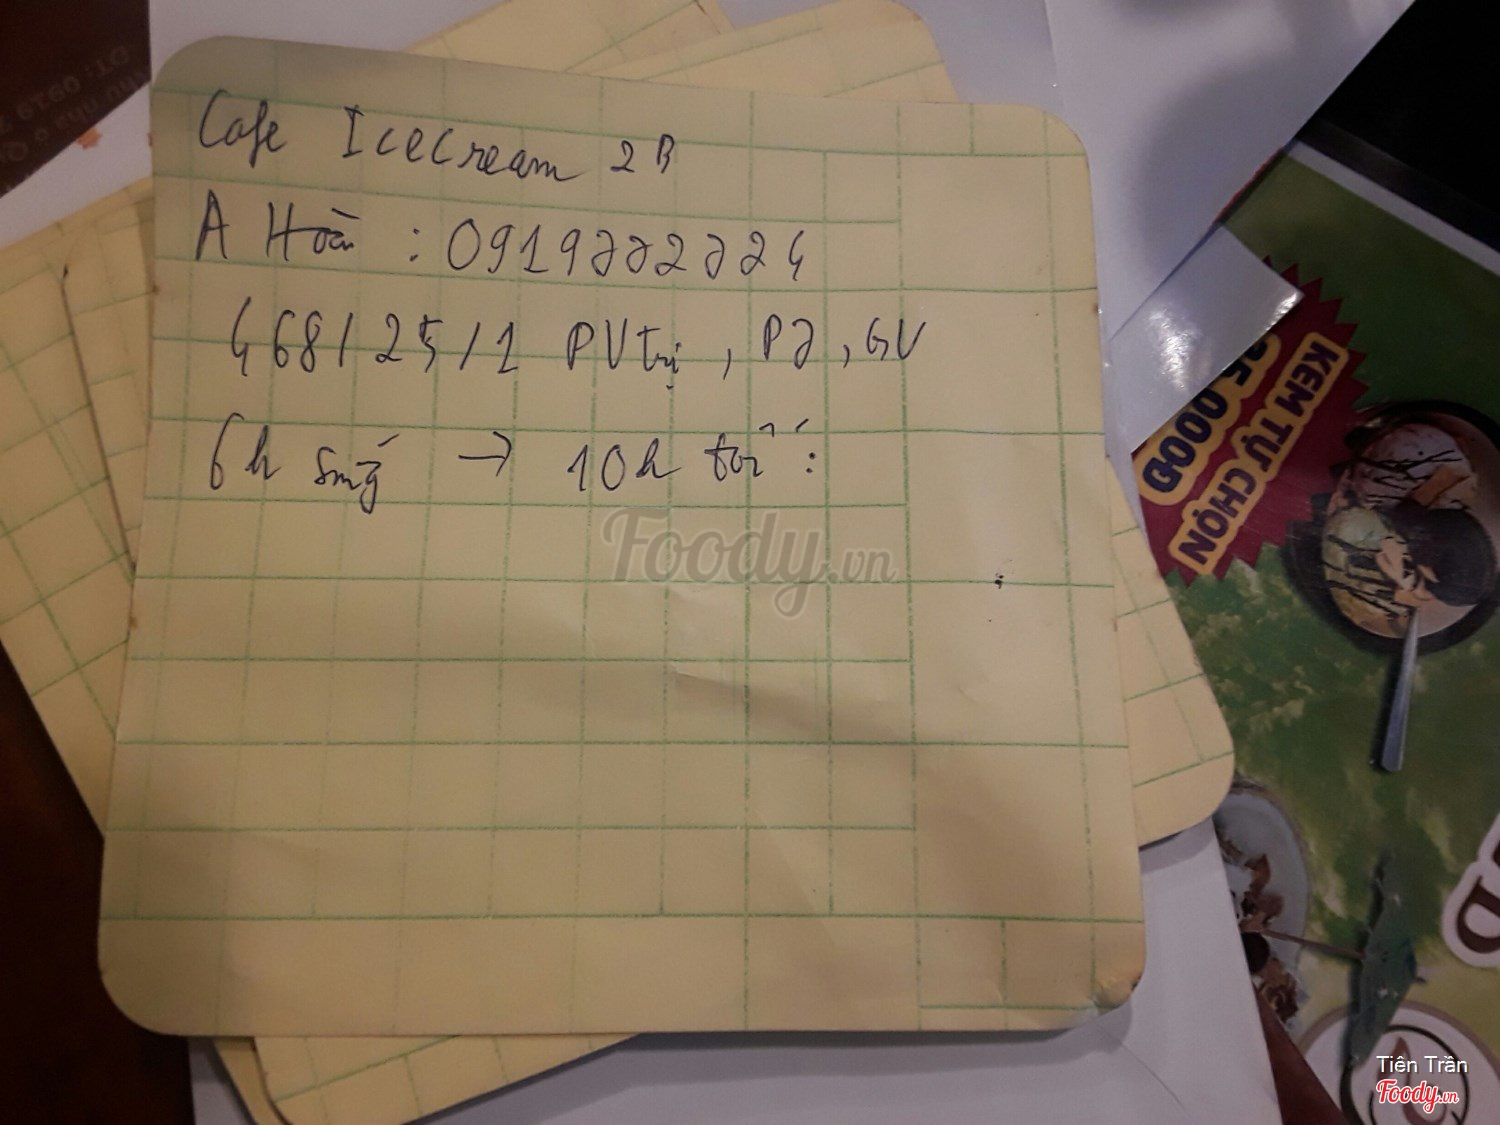 Cafe IceCream 2B
A Hoàn : 0919772724
468/25/1 PVTrị, P7, GV
6h sáng → 10h tối :
Foody.vn
KEM TỰ CHỌN
35.000Đ
Tiên Trần
Foody.vn